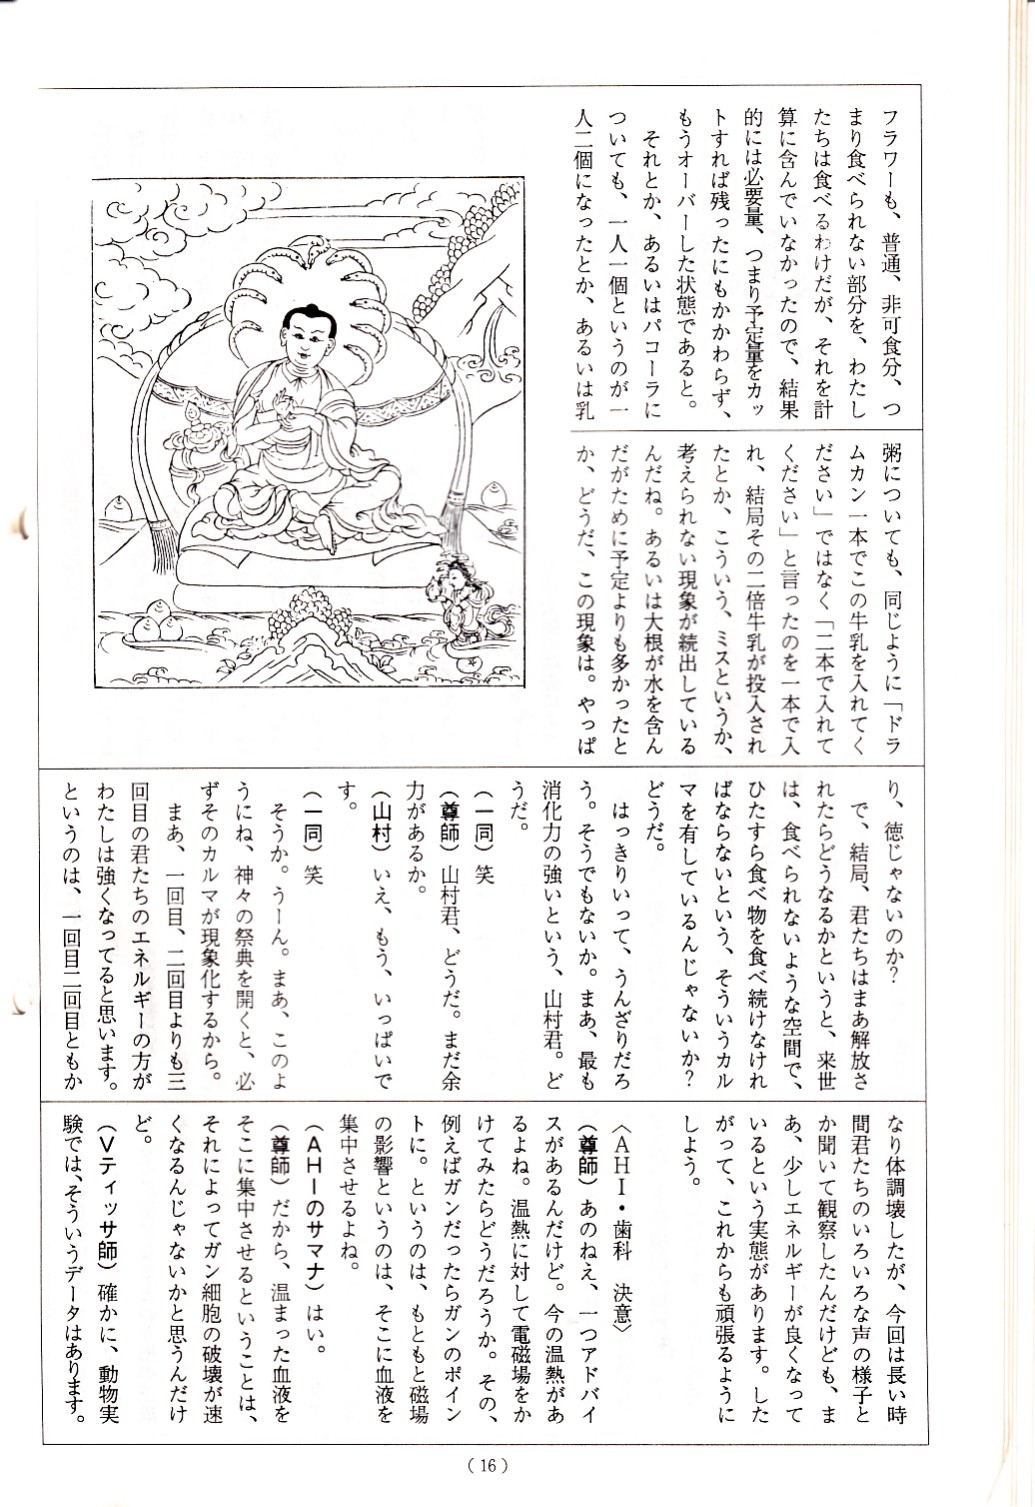 フラワーも、普通、非可食分、つ
まり食べられない部分を、わたし
たちは食べるわけだが、それを計
算に含んでいなかったので、結果
的には必要量、つまり予定量をカッ
トすれば残ったにもかかわらず、
もうオーバーした状態であると。
それとか、あるいはパコーラに
ついても、一人一個というのが一
人二個になったとか、あるいは乳
粥についても、同じように「ドラ
ムカン一本でこの牛乳を入れてく
ださい」ではなく「二本で入れて
ください」と言ったのを一本で入
れ、結局その二倍牛乳が投入され
たとか、こういう、ミスというか、
考えられない現象が続出している
んだね。あるいは大根が水を含ん
だがために予定よりも多かったと
か、どうだ、この現象は。やっぱ
り、徳じゃないのか?
で、結局、君たちはまあ解放さ
れたらどうなるかというと、来世
は、食べられないような空間で、
ひたすら食べ物を食べ続けなけれ
ばならないという、そういうカル
マを有しているんじゃないか?
どうだ。
はっきりいって、うんざりだろ
う。そうでもないか。まあ、最も
消化力の強いという、山村君。ど
うだ。
(一同)笑
(尊師)山村君、どうだ。まだ余
力があるか。
(山村)いえ、もう、いっぱいで
す。
(一同)笑
そうか。うーん。まあ、このよ
うにね、神々の祭典を開くと、必
ずそのカルマが現象化するから。
まあ、一回目、二回目よりも三
回目の君たちのエネルギーの方が
わたしは強くなってると思います。
というのは、一回目二回目ともか
なり体調壊したが、今回は長い時
間君たちのいろいろな声の様子と
か聞いて観察したんだけども、ま
あ、少しエネルギーが良くなって
いるという実態があります。した
がって、これからも頑張るように
しよう。
〈AHI・歯科　決意〉
(尊師)あのねえ、一つアドバイ
スがあるんだけど。今の温熱があ
るよね。温熱に対して電磁場をか
けてみたらどうだろうか。その、
例えばガンだったらガンのポイン
トに。というのは、もともと磁場
の影響というのは、そこに血液を
集中させるよね。
(AHIのサマナ)はい。
(尊師)だから、温まった血液を
そこに集中させるということは、
それによってガン細胞の破壊が速
くなるんじゃないかと思うんだけ
ど。
(Vティッサ師)確かに、動物実
験では、そういうデータはあります。
(16)